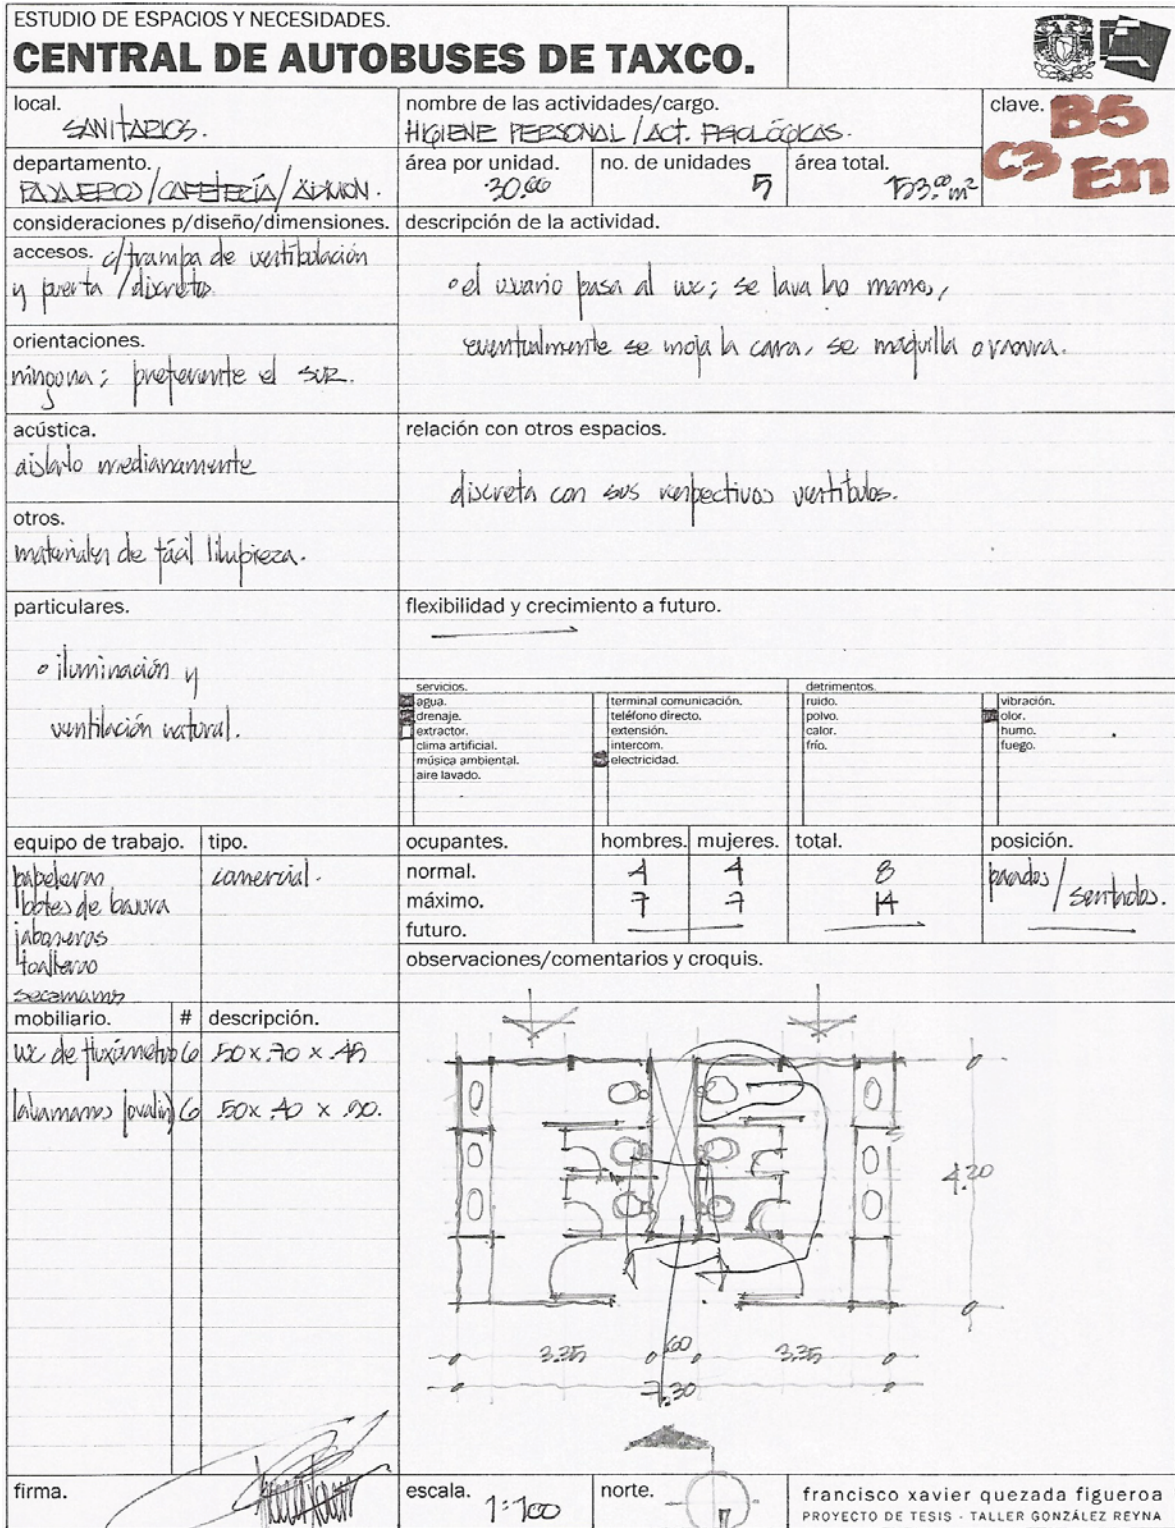 ESTUDIO DE ESPACIOS Y NECESIDADES.
CENTRAL DE AUTOBUSES DE TAXCO.
local.
SANITARIOS.
nombre de las actividades/cargo.
HIGIENE PERSONAL / ACT. FISIOLÓGICAS.
clave. B5
C3 E11
departamento.
PASAJEROS / CAFETERÍA / ADMON.
área por unidad.
30.66
no. de unidades
5
área total.
153.00 m2
consideraciones p/diseño/dimensiones.
accesos. c/trampa de ventibulación
y puerta / discretos.
orientaciones.
ninguna; preferente el SUR.
acústica.
aislarlo medianamente
otros.
materiales de fácil limpieza.
particulares.
• iluminación y
ventilación natural.
descripción de la actividad.
• el usuario pasa al wc; se lava las manos,
eventualmente se moja la cara, se maquilla o rasura.
relación con otros espacios.
discreta con sus respectivos vestíbulos.
flexibilidad y crecimiento a futuro.
servicios.
agua.
drenaje.
extractor.
clima artificial.
música ambiental.
aire lavado.
terminal comunicación.
teléfono directo.
extensión.
intercom.
electricidad.
detrimentos.
ruido.
polvo.
calor.
frío.
vibración.
olor.
humo.
fuego.
equipo de trabajo.
papeleras
botes de basura
jaboneras
toalleros
secamanos
tipo.
comercial.
ocupantes. hombres. mujeres. total. posición.
normal. 4 4 8 parados / sentados.
máximo. 7 7 14
futuro.
mobiliario. # descripción.
wc de fluxómetro 6 .50 x .70 x .45
lavamanos (ovalín) 6 .50 x .40 x .90.
observaciones/comentarios y croquis.
4.20
3.35 .60 3.35
7.30
firma.
escala. 1:100
norte.
francisco xavier quezada figueroa
PROYECTO DE TESIS - TALLER GONZÁLEZ REYNA